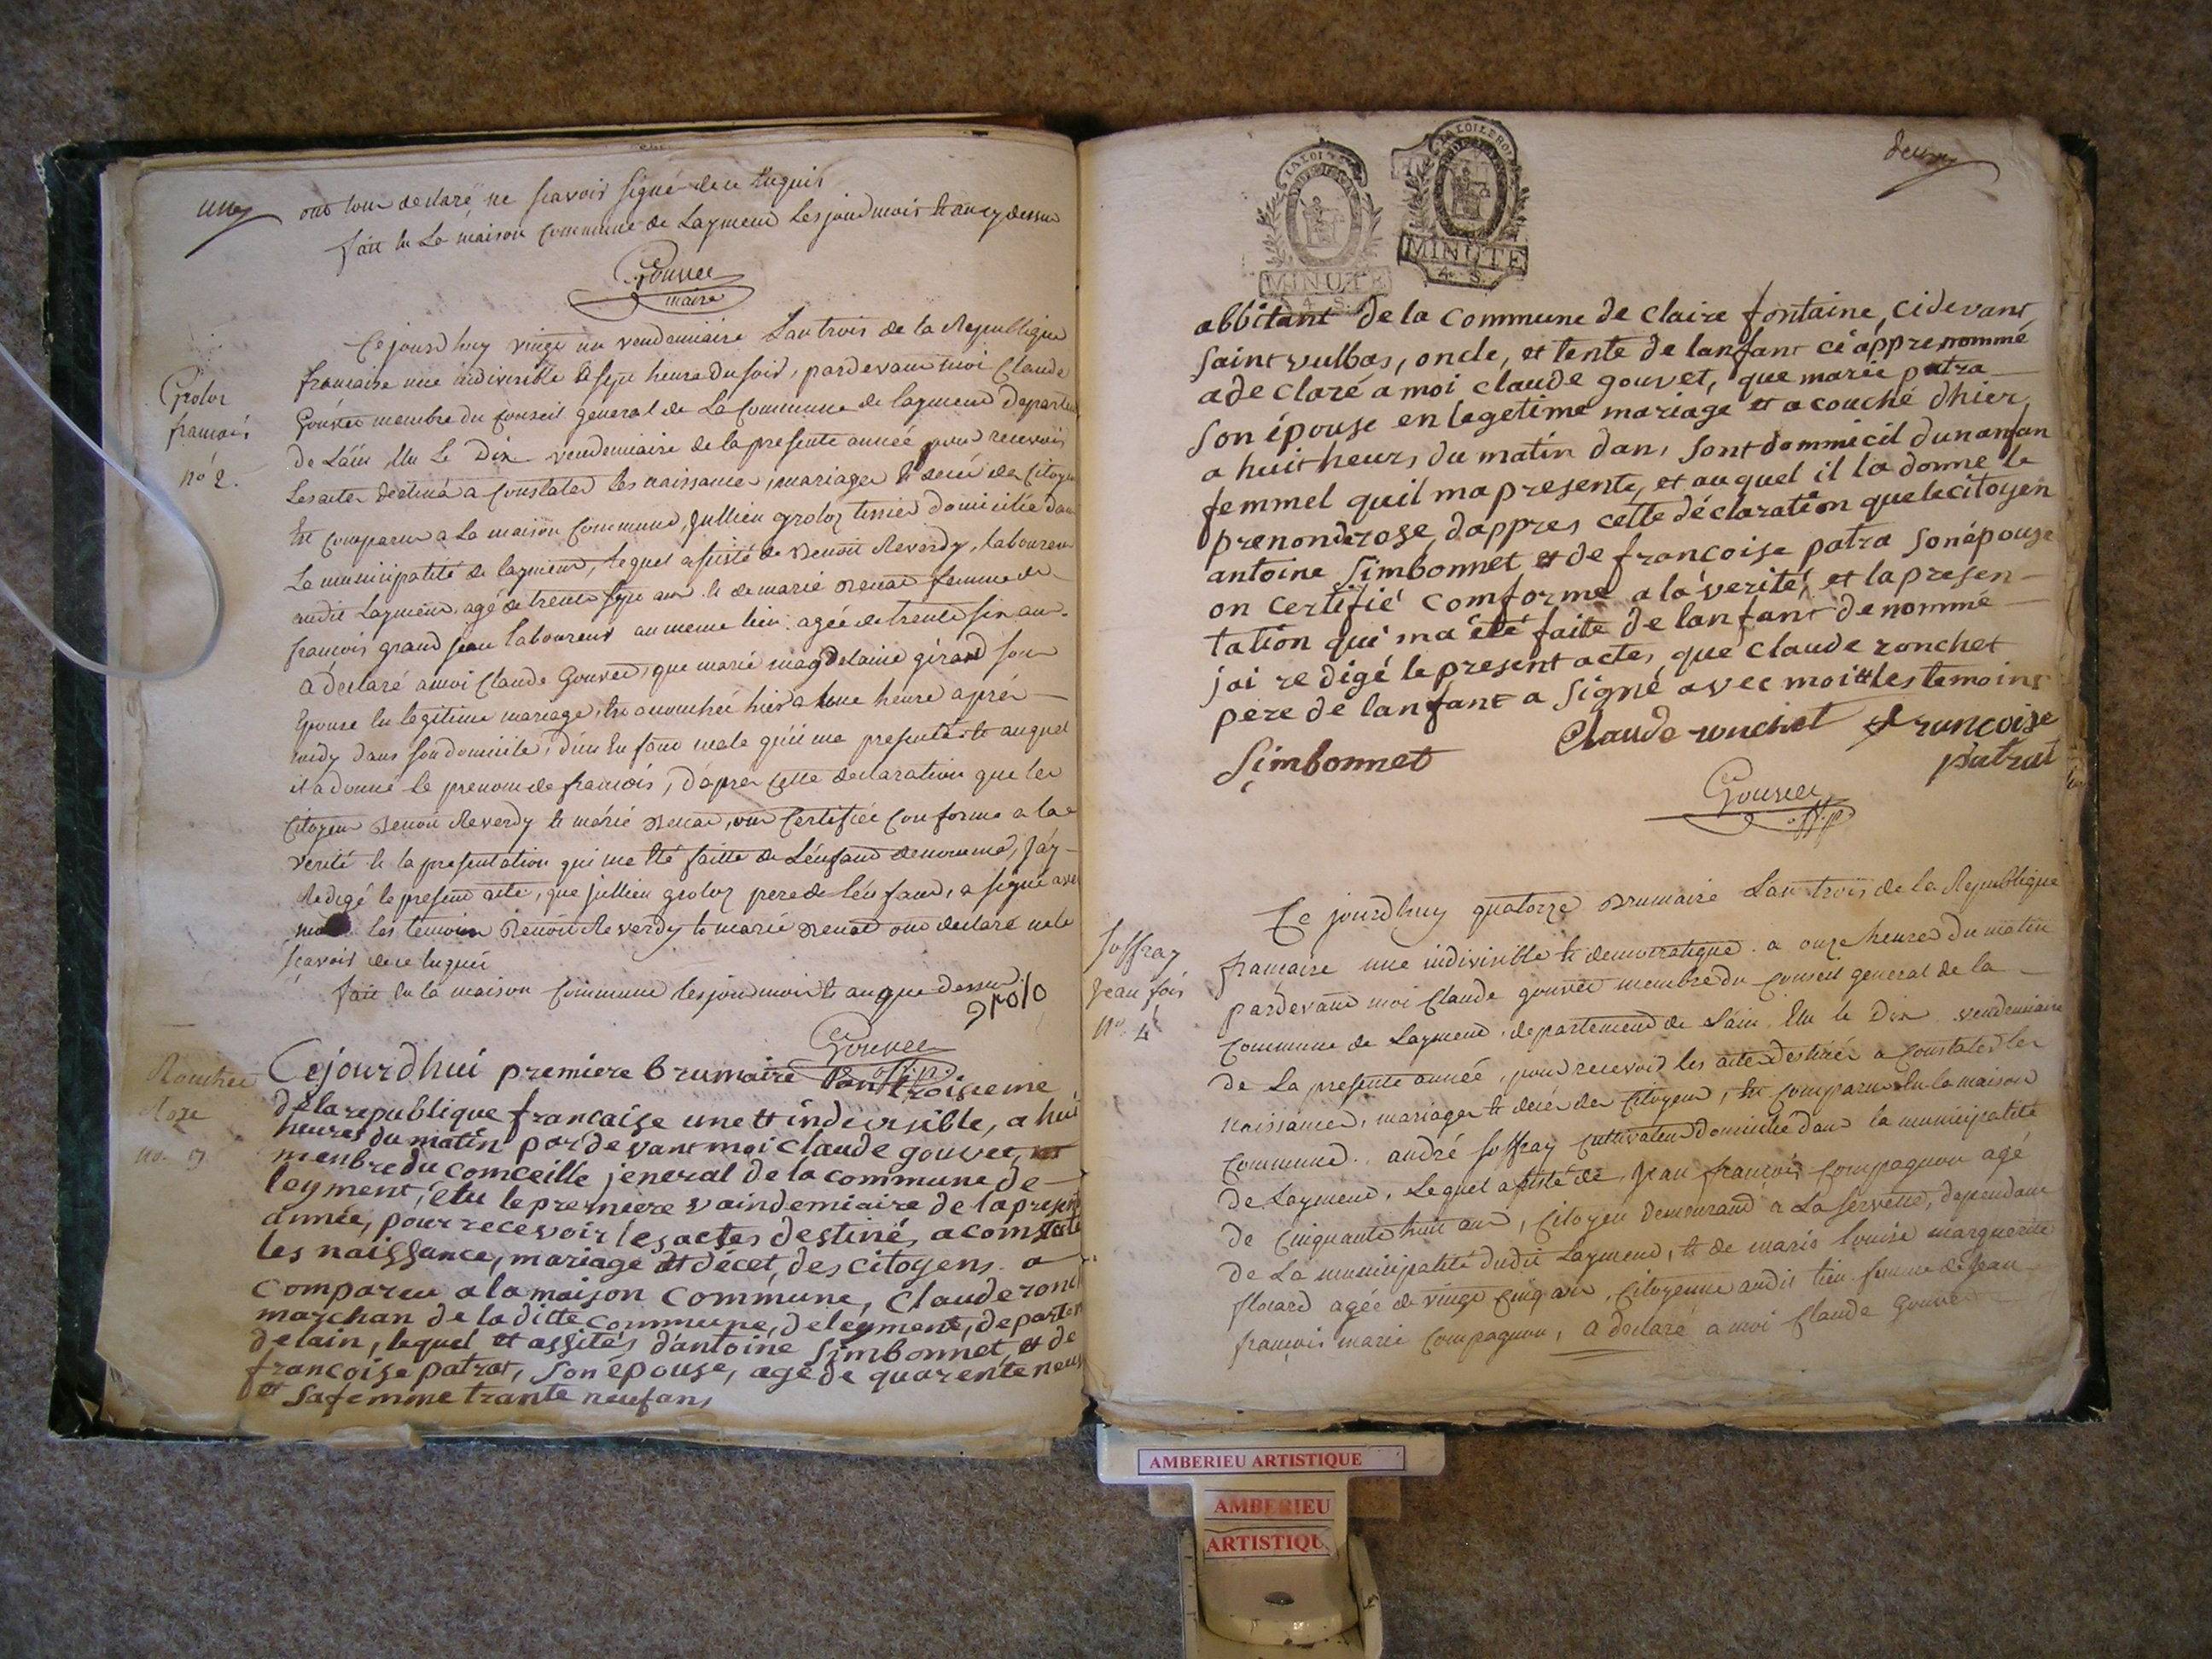 ont tour declaré ne scavoir signé de ce Enquis
fait En La maison Commune de Layment Les jour mois Et an cy dessus
Gouvet
maire
Groloz
francois
nº 2.
Ce jourd huy vingt un vendemiaire Lan trois de la Republique
francaise une indivisible a sept heure du soir, par devant moi Claude
Gouvet membre du conseil general de La Commune de layment departem
de Lain Elu Le Dix vendemiaire de la presente année pour recevoir
Les actes destiné a Constater Les naissance, mariages Et decés des Citoyen
Est Comparu a La maison Commune, Jullien groloz tissier domicilié dans
La municipalité de layment, lequel assisté de Benoit Reverdy, laboureur
audit Layment agé de trente sept ans Et de marie Benat femme de
francois grand jean laboureur au meme lieu agée de trente six ans
a declaré a moi Claude Gouvet, que marie magdelaine girard son
Epouse En legitime mariage Est acouchée hier a Une heure aprés
midy dans son domicile, d'un Enfant male qu'il me presente Et auquel
il a donné le prenom de francois, d'apres cette declaration que les
Citoyen Benoit Reverdy Et marie Benat, ont Certifiée Conforme a la
verité Et la presentation qui me Eté faitte de L'énfant denommé, J'ay
Redigé le present acte, que jullien groloz pere de l'énfant, a signé avec
moi les temoins Benoit Reverdy Et marie Benat ont declaré ne le
scavoir de ce Enquis
fait En la maison Commune Les jour mois Et an que dessus
grolo
Gouvet
off. p.
Ronchet
Roze
no. 3
Cejourdhui premiere brumaire Lan troiseme
de la republique francaise une et indivisible, a hui
heures du matin par devant moi claude gouvet,
menbre du comceille jeneral de la commune de
leyment, élu le premiere vaindemiaire de la presen
année, pour recevoir les actes destiné, a comstate
les naissance, mariage et décet, des citoyens. a
compareu a la maison commune, Claude ronc
marchan de la ditte commune, de leyment, departem
de lain, lequel et assités d'antoine simbonnet, et de
francoise patrat, son épouse, age de quarente neuf
et sa femme trante neuf ans
deux
LA LOI
MINUTE
4. S.
LA LOI LE ROI
MINUTE
4. S.
abbitant de la commune de claire fontaine, cidevant
saint vulbas, oncle, et tente de lanfant ci apprenommé
a de claré a moi claude gouvet, que marie patra
son épouse en legetime mariage et acouché dhier
a huit heurs du matin dans sont dommicil dun anfan
femmel quil ma presente, et auquel il la donne le
prenon de rose, dappres cette déclaration que le citoyen
antoine simbonnet et de francoise patra son épouse
on certifié comforme a la verité, et la presen
tation qui ma été faite de lanfant denommé
jai redigé le present actes, que claude ronchet
pere de lanfant a signé avec moi et les temoins
Claude ronchet francoise
simbonnet patrat
Gouvet
off. p.
Soffray
Jean fois
nº. 4
Ce jourdhuy quatorze Brumaire Lan trois de la Republique
francaise une indivisible Et democratique a onze heures du matin
pardevant moi Claude gouvet membre du Conseil general de la
Commune de Layment, departement de Lain, Elu le Dix vendemiaire
de La presente année, pour recevoir les actes destinée a Constater les
naissances, mariages Et decés des Citoyens, Est comparu En la maison
Commune. andré Soffray Cultivateur domicilié dans la municipalité
de Layment, Lequel assisté de Jean francois Compagnon agé
de Cinquante huit ans, Citoyen demeurant a La Servette, dependant
de La municipalité dudit Layment, Et de marie louise marguerite
flocard agée de vingt Cinq ans, Citoyenne audit lieu femme de Jean
francois marie Compagnon, a declaré a moi Claude Gouvet
AMBERIEU ARTISTIQUE
AMBERIEU
ARTISTIQU